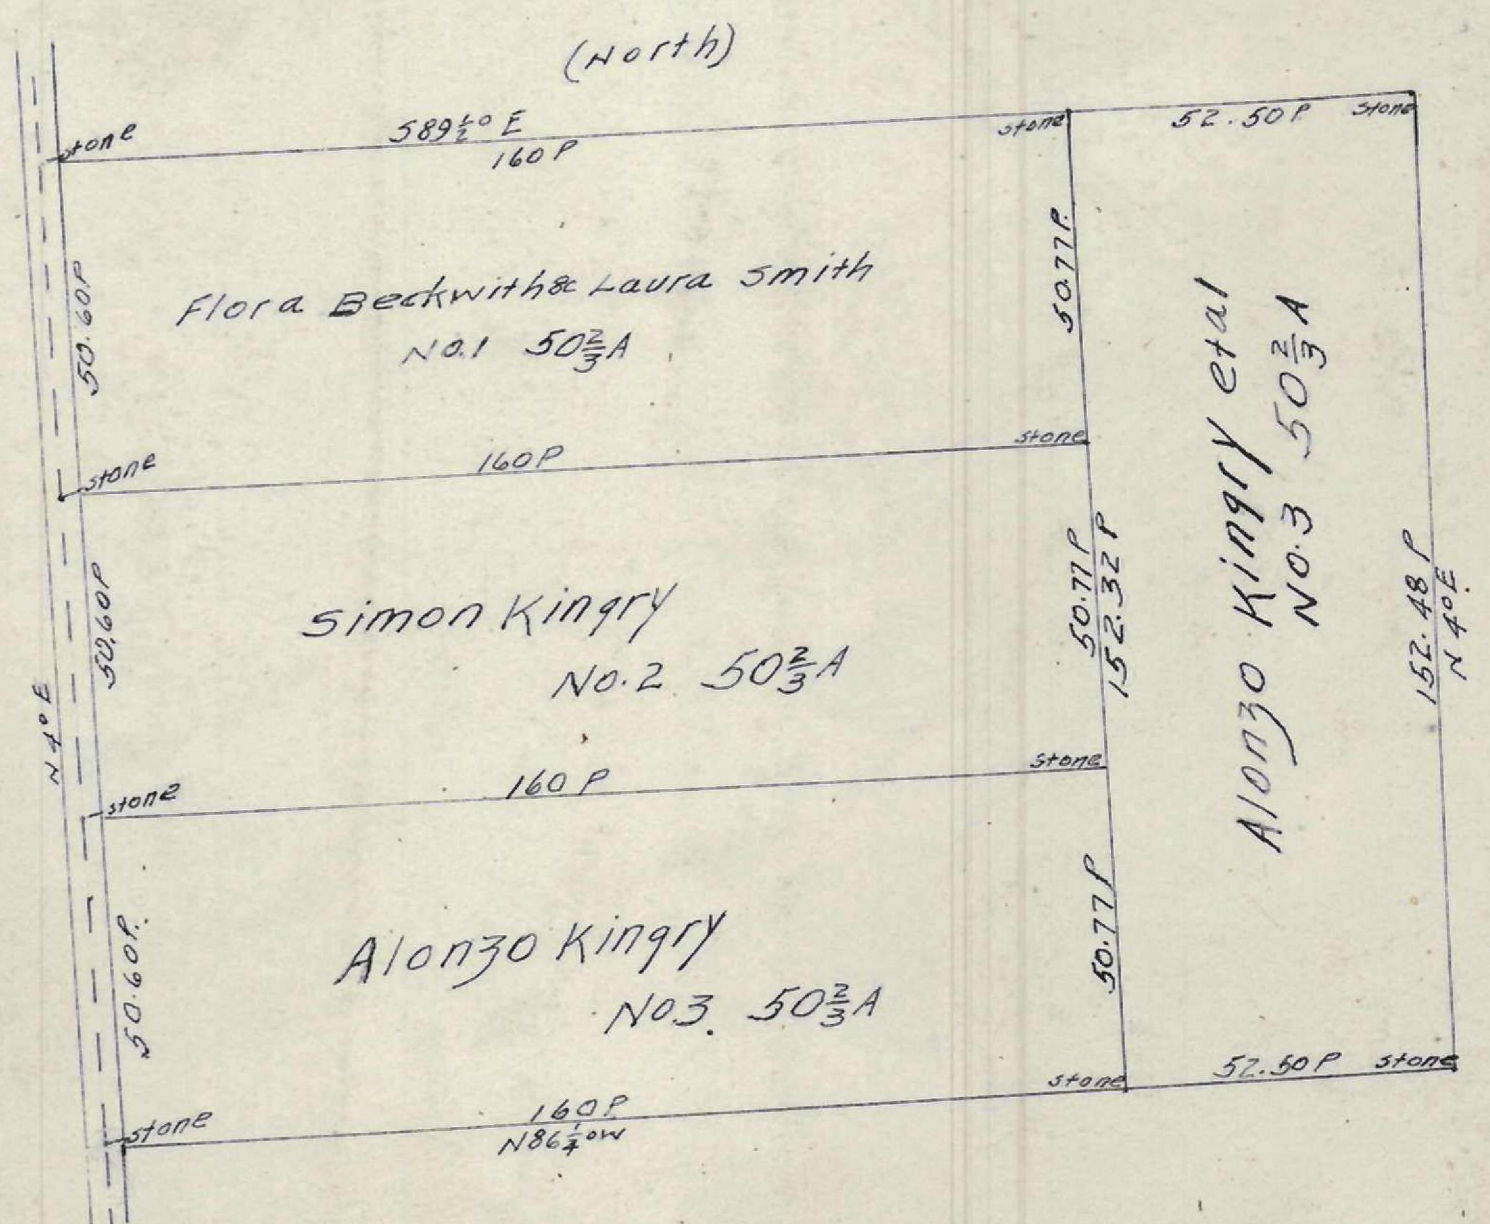 (North)
S89½° E
160 P
stone
stone
52.50 P
stone
50.60P
Flora Beckwith & Laura Smith
No.1 50⅔ A
50.77P.
stone
160 P
stone
50.60P
Simon Kingry
No.2 50⅔ A
50.77 P
152.32 P
Alonzo Kingry et al
No.3 50⅔ A
152.48 P
N 4° E.
N 4° E
stone
160 P
stone
50.60P.
Alonzo Kingry
No.3. 50⅔ A
50.77 P
stone
160 P.
N86¼° W
stone
52.50 P
stone